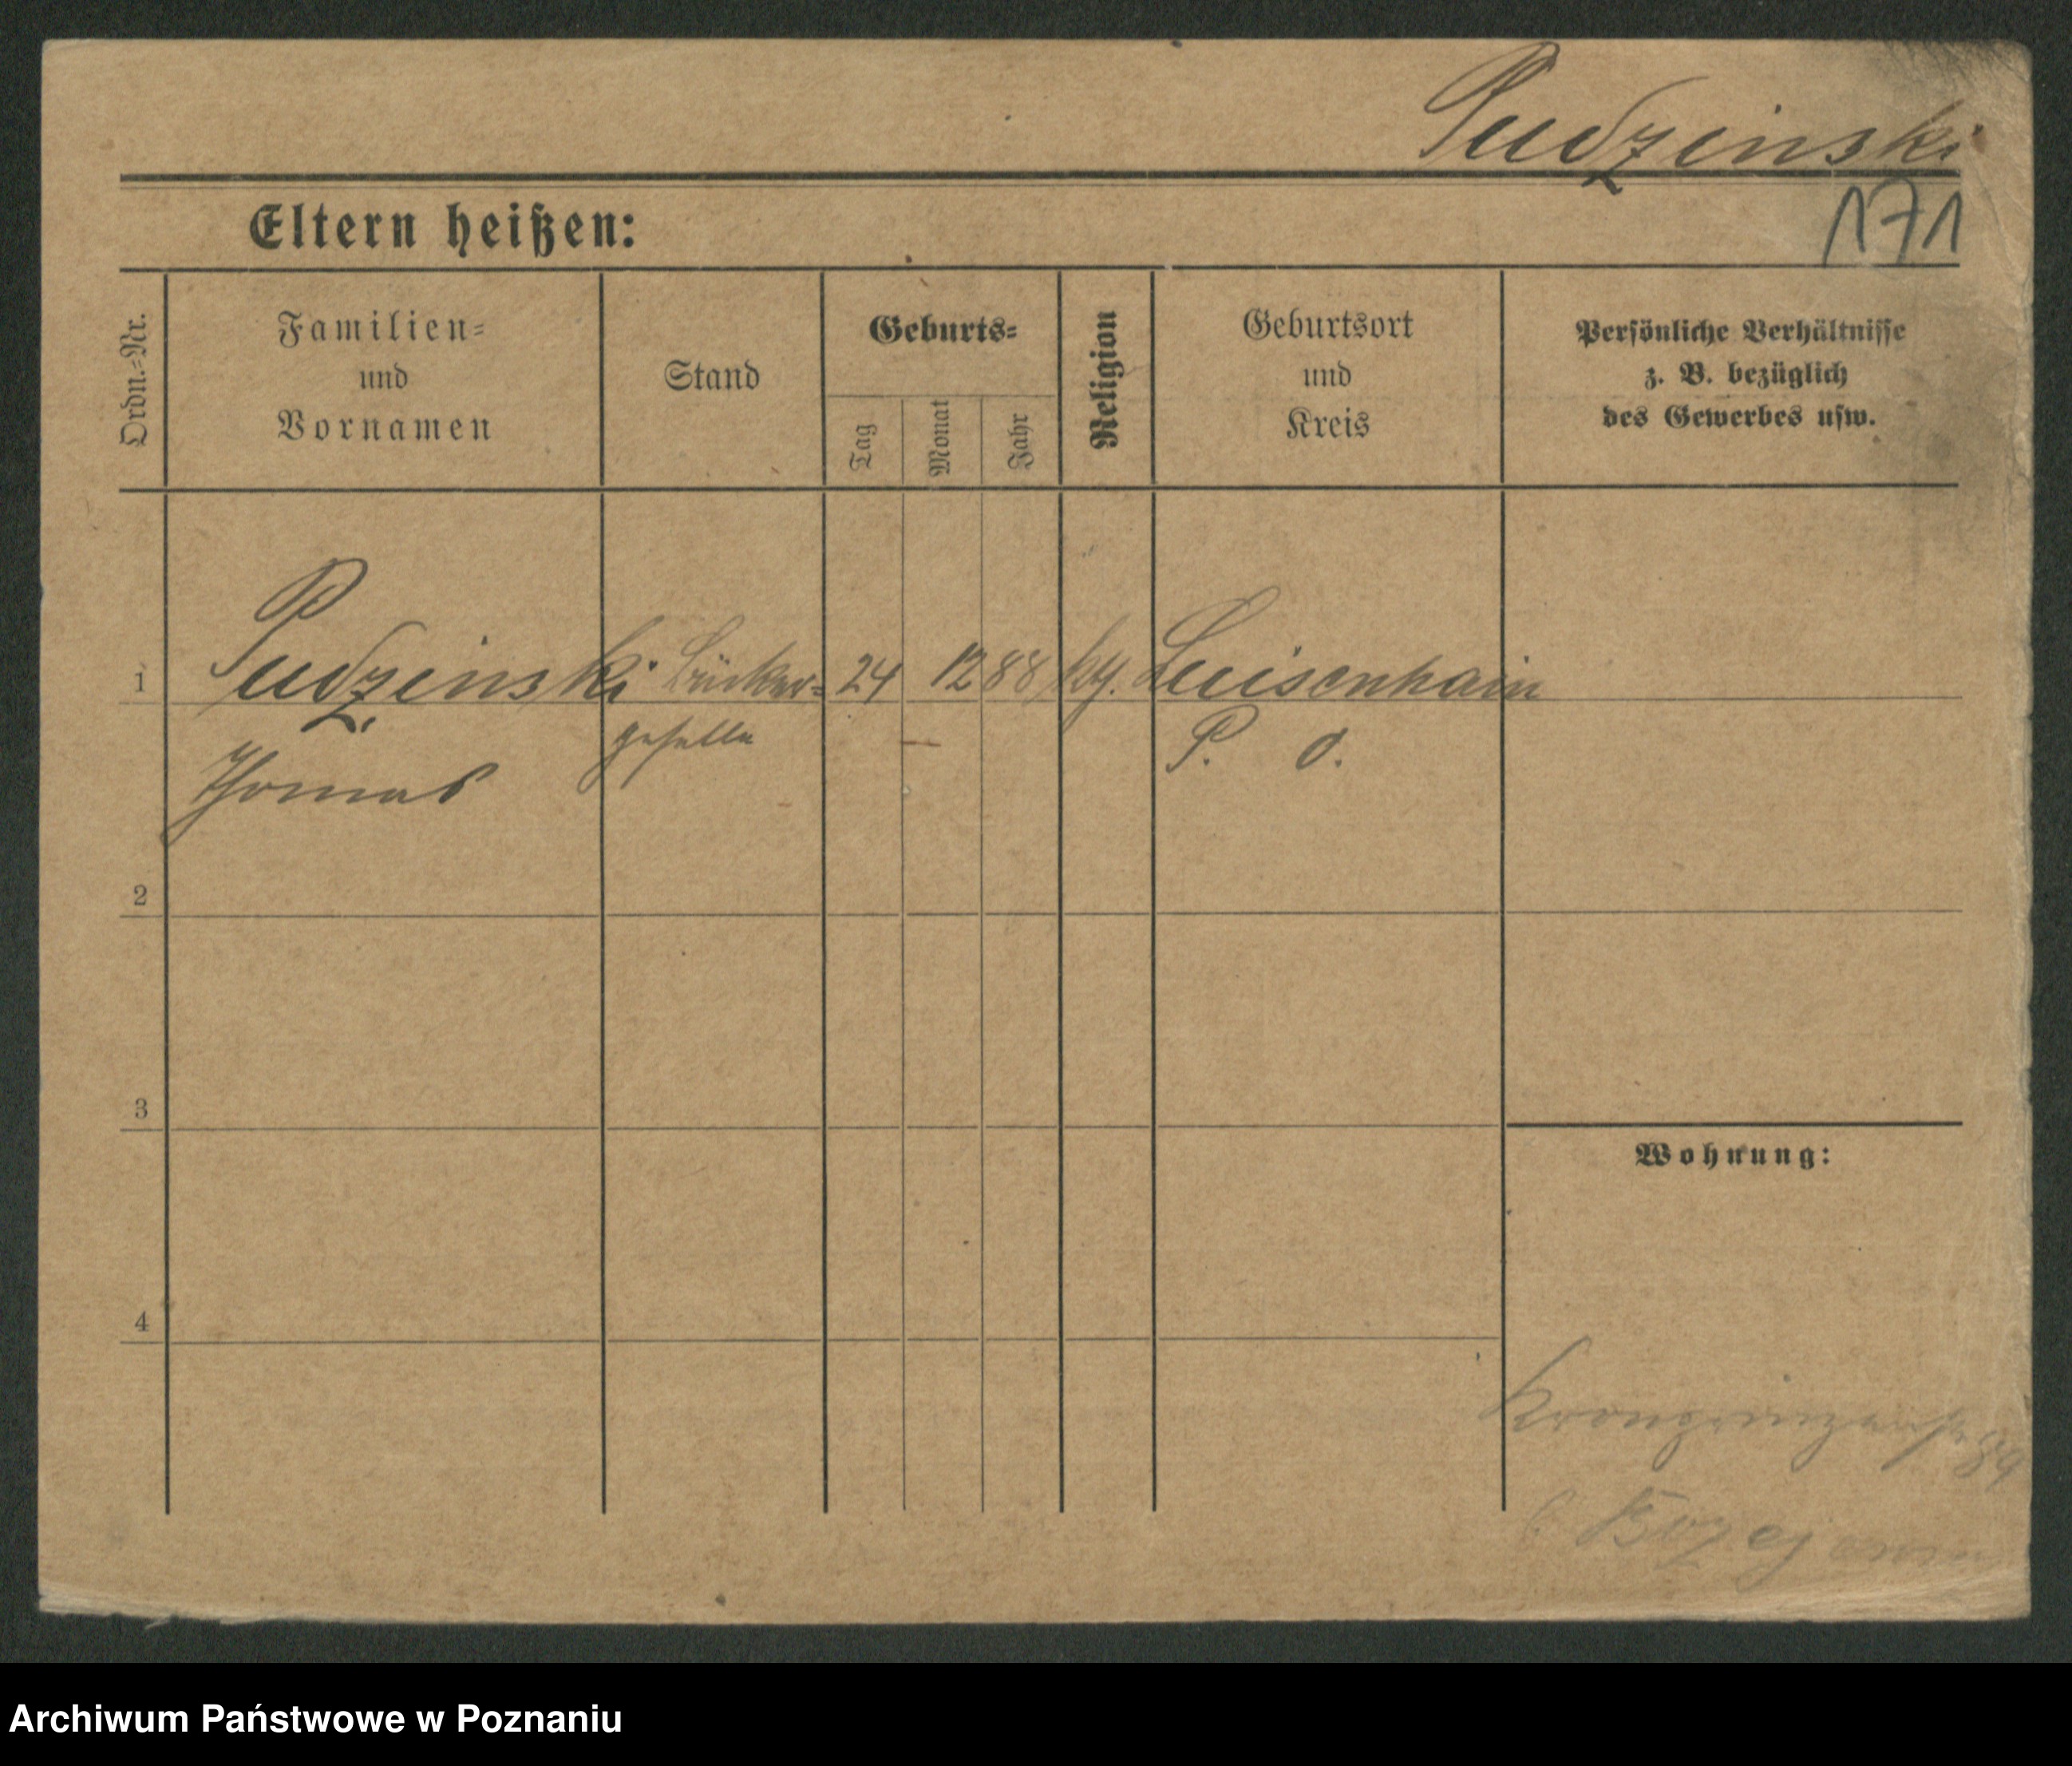 Pudzinski
171
Eltern heißen:
Ordn.=Nr.
Familien=
und
Vornamen
Stand
Geburts=
Tag
Monat
Jahr
Religion
Geburtsort
und
Kreis
Persönliche Verhältnisse
z. B. bezüglich
des Gewerbes usw.
1 Pudzinski Bäcker= 24 12 88 kth. Luisenhain
geselle P. O.
Thomas
2
3
Wohnung:
4
Kronprinzenstr. 89
Archiwum Państwowe w Poznaniu